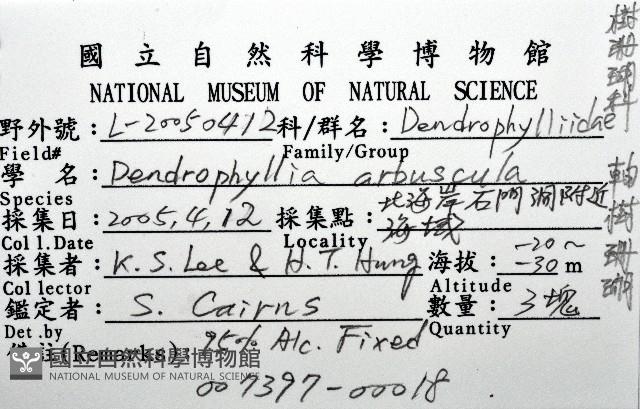 國立自然科學博物館
NATIONAL MUSEUM OF NATURAL SCIENCE
野外號：L-20050412 科/群名：Dendrophylliidae
Field# Family/Group
學 名：Dendrophyllia arbuscula
Species
採集日：2005,4,12 採集點：北海岸石門洞附近海域
Coll.Date Locality
採集者：K.S. Lee & H.T. Hung 海拔：-20~-30m
Collector Altitude
鑑定者：S. Cairns 數量：3塊
Det.by Quantity
備註(Remarks)：95% Alc. Fixed
007397-00018
樹珊瑚科 軸樹珊瑚
國立自然科學博物館
NATIONAL MUSEUM OF NATURAL SCIENCE